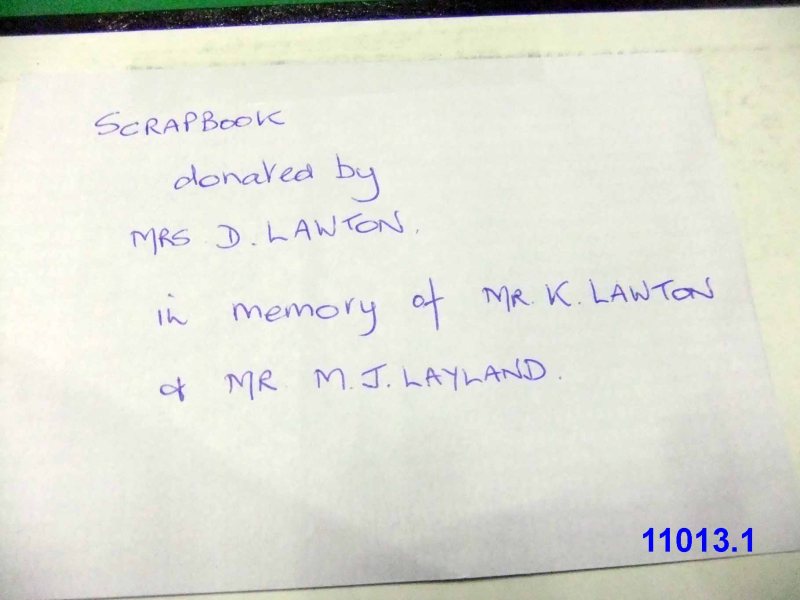 SCRAPBOOK
donated by
MRS D. LAWTON.
in memory of MR. K. LAWTON
& MR M. J. LAYLAND.
11013.1